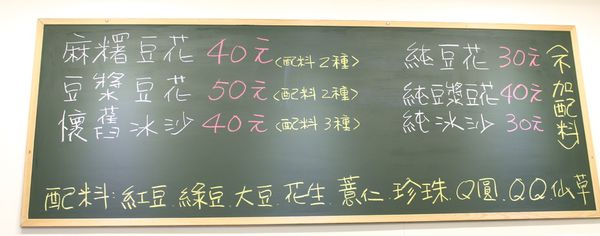 麻糬豆花 40元 (配料2種)
豆漿豆花 50元 (配料2種)
懷舊冰沙 40元 (配料3種)
純豆花 30元
純豆漿豆花 40元
純冰沙 30元
(不加配料)
配料:紅豆.綠豆.大豆.花生.薏仁.珍珠.Q圓.QQ.仙草